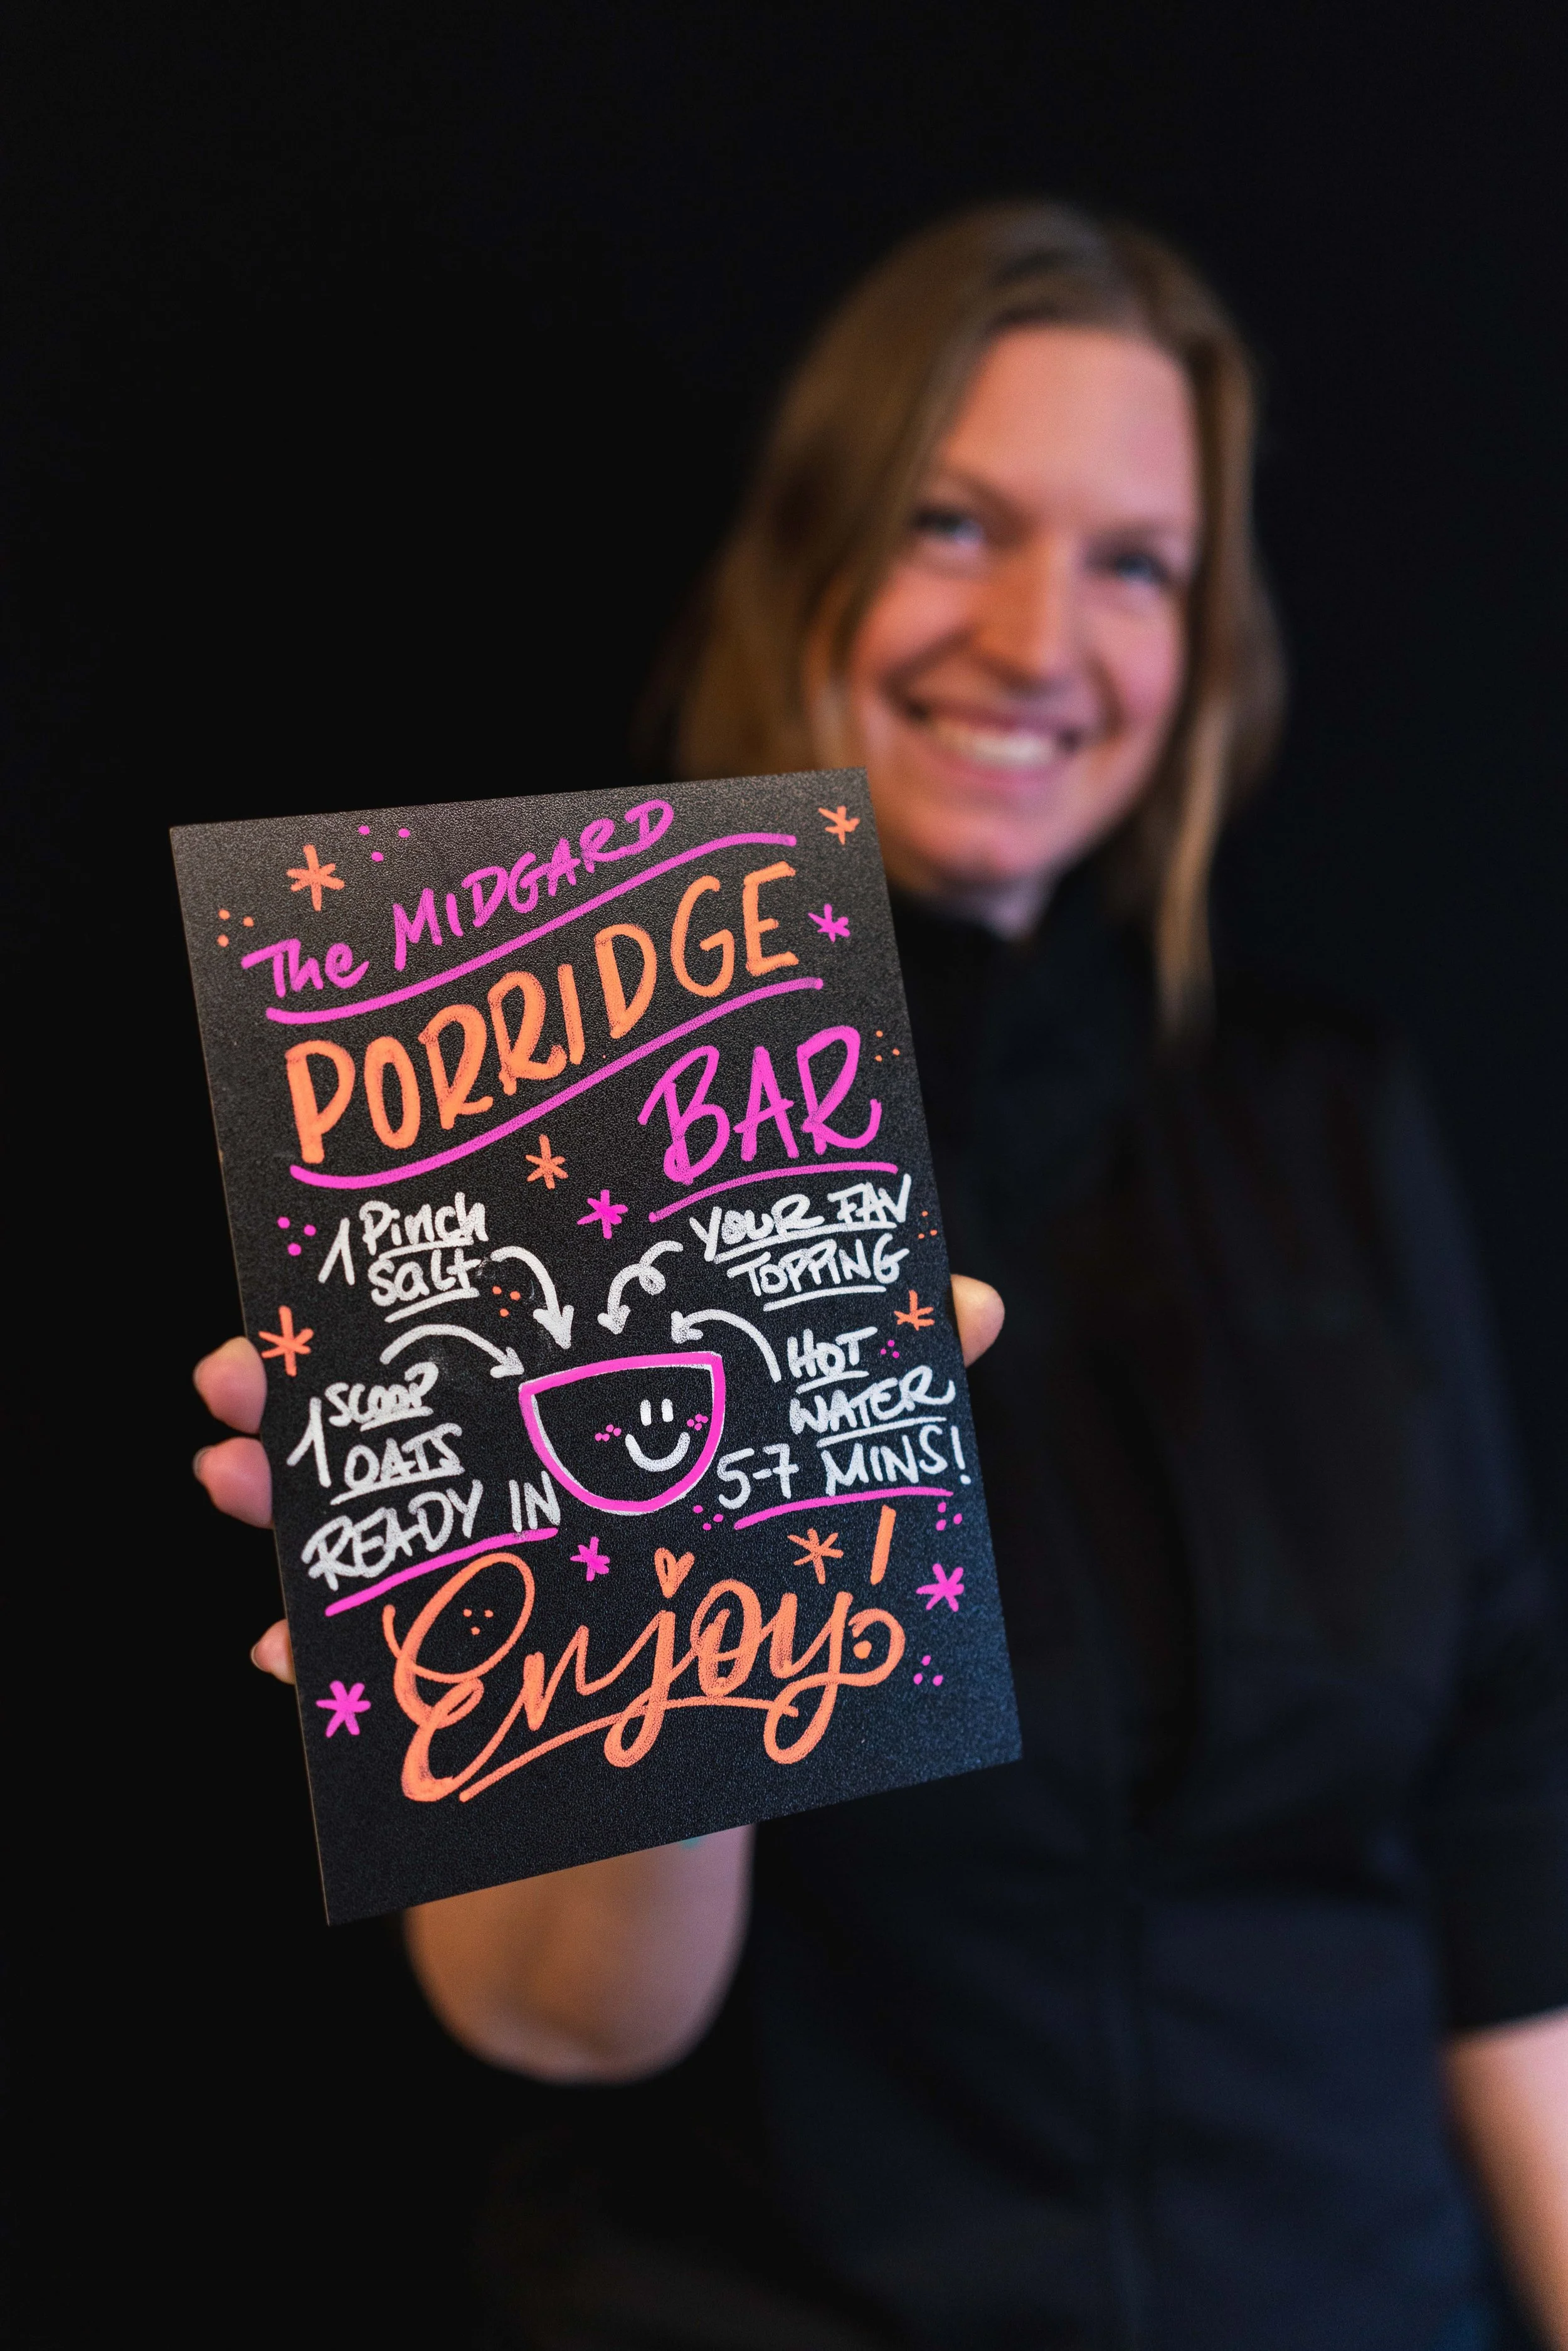 The MIDGARD
PORRIDGE
BAR
1 Pinch
Salt
YOUR FAV
TOPPING
1 SCOOP
OATS
HOT
WATER
READY IN
5-7 MINS!
Enjoy!